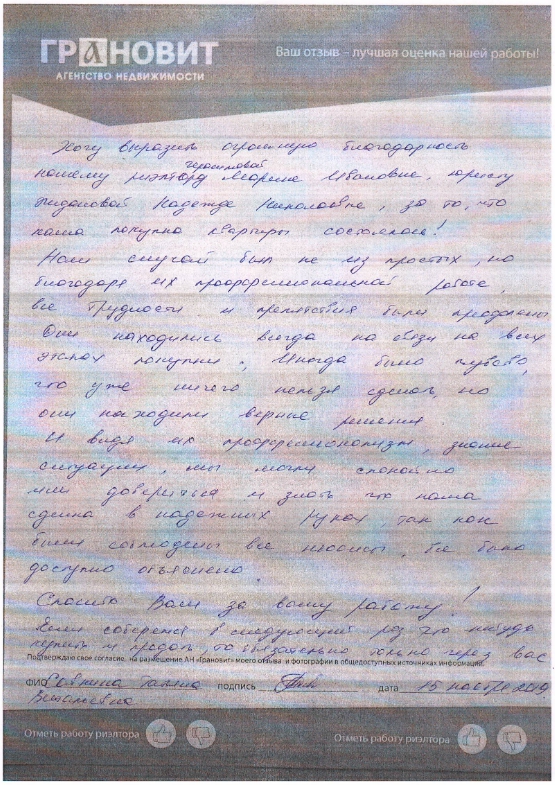 ГРАНОВИТ
АГЕНТСТВО НЕДВИЖИМОСТИ
Ваш отзыв – лучшая оценка нашей работы!
Хочу выразить огромную благодарность
Герасимовой
нашему риэлтору Марине Ивановне, юристу
Надежде Николаевне, за то, что
наша покупка квартиры состоялась!
Наш случай был не из простых, но
благодаря их профессиональной работе,
все трудности и препятствия были преодолены
Они находились всегда на связи на всех
этапах покупки. Иногда было чувство,
что уже ничего нельзя сделать, но
они находили верные решения
И видя их профессионализм, знание
ситуации, мы могли спокойно
им довериться и знать что наша
сделка в надежных руках, так как
были соблюдены все нюансы, все было
доступно объяснено.
Спасибо Вам за вашу работу!
Если соберемся в следующий раз что нибудь
купить и продать, то обязательно только через вас
Подтверждаю свое согласие, на размещение АН «Грановит» моего отзыва и фотографии в общедоступных источниках информации.
ФИО Галина подпись дата 15 ноября 2019
Отметь работу риэлтора
Отметь работу риэлтора